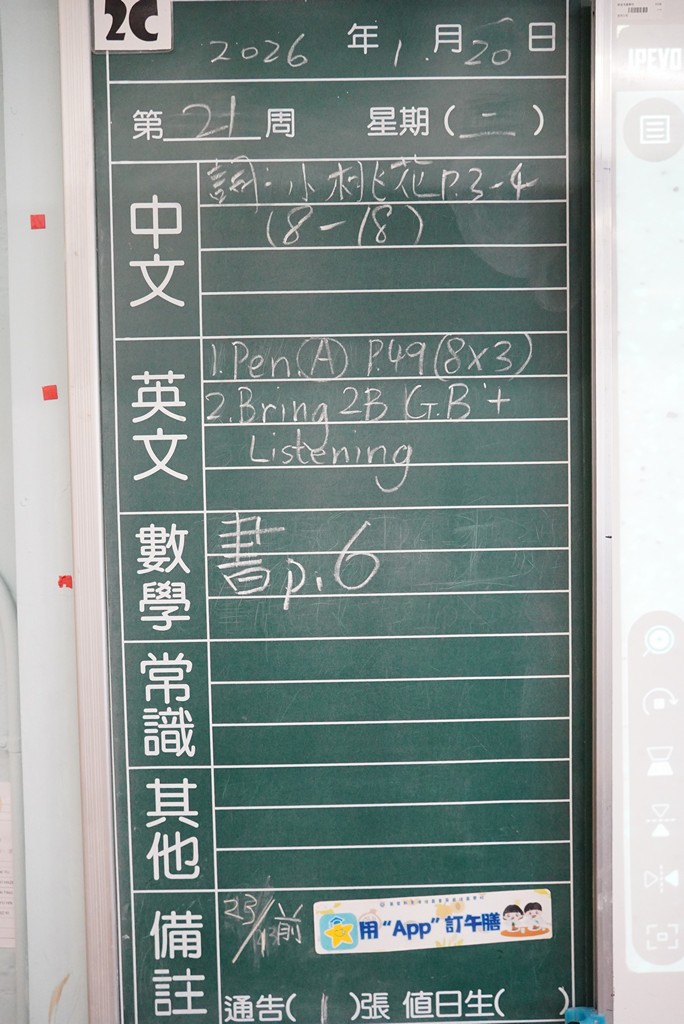 2C
2026 年 1 月 20 日
第 21 周 星期 ( 二 )
中文
詞：小桃花P.3-4
(8-18)
英文
1. Pen.(A) P.49 (8x3)
2. Bring 2B G.B +
Listening
數學
書p.6
常識
其他
備註
用“App”訂午膳
通告( 1 )張 值日生( )
IPEVO